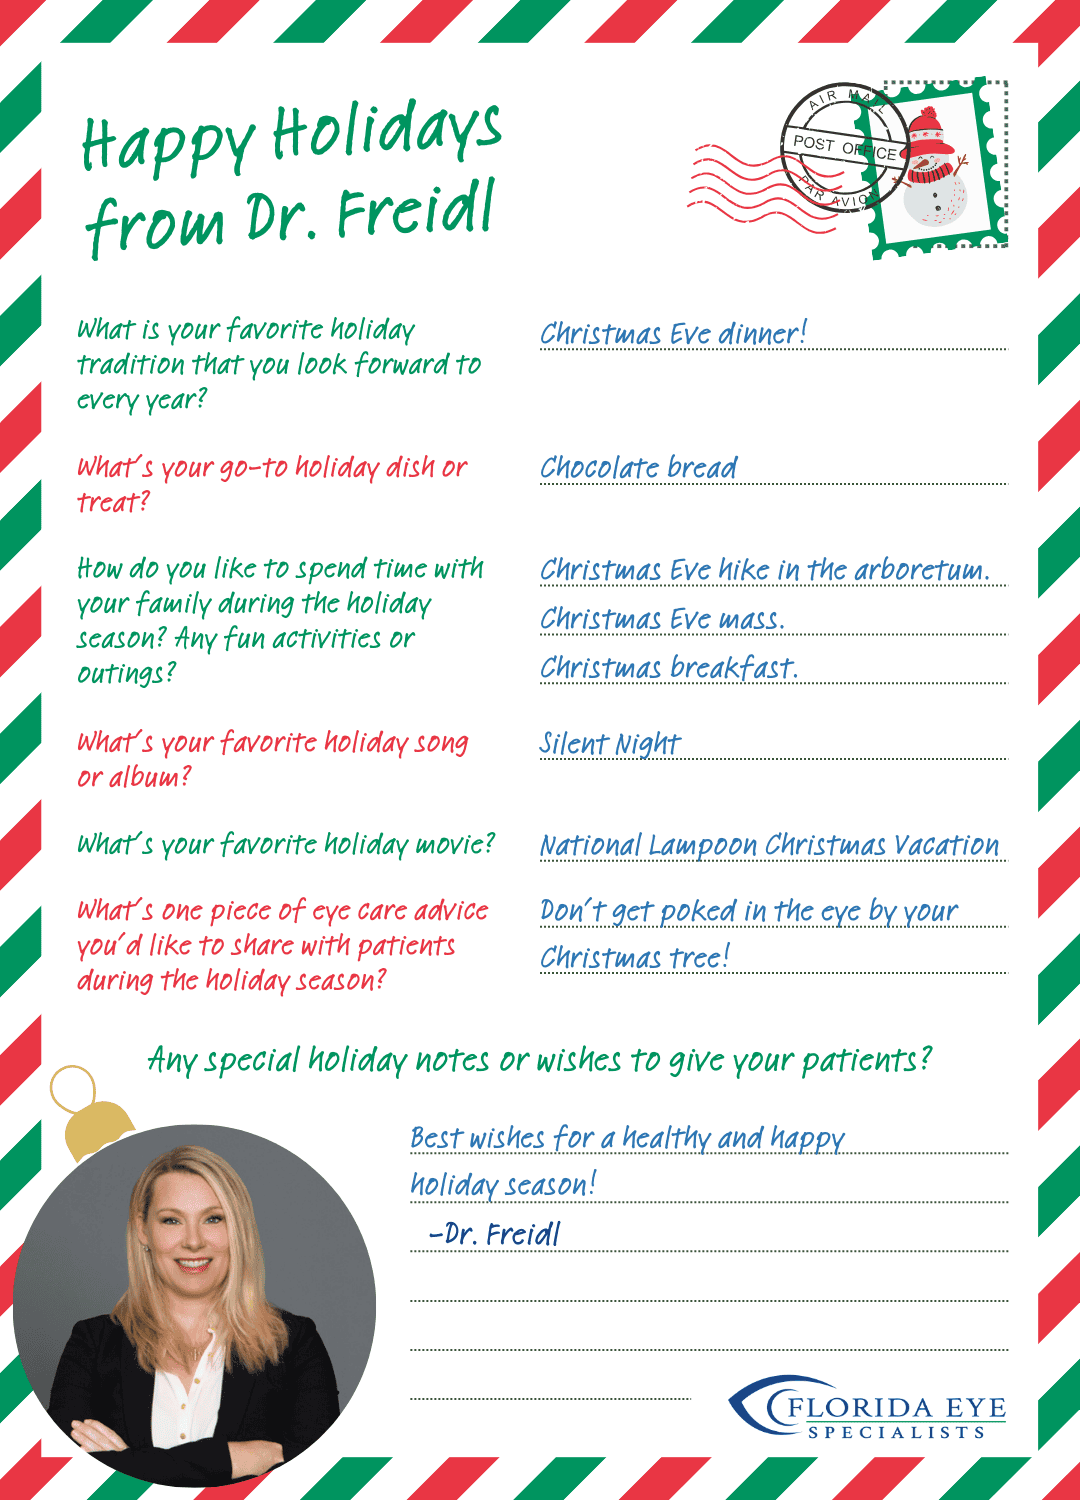 Happy Holidays
from Dr. Freidl
AIR MAIL
POST OFFICE
PAR AVION
What is your favorite holiday
tradition that you look forward to
every year?
Christmas Eve dinner!
What's your go-to holiday dish or
treat?
Chocolate bread
How do you like to spend time with
your family during the holiday
season? Any fun activities or
outings?
Christmas Eve hike in the arboretum.
Christmas Eve mass.
Christmas breakfast.
What's your favorite holiday song
or album?
Silent Night
What's your favorite holiday movie?
National Lampoon Christmas Vacation
What's one piece of eye care advice
you'd like to share with patients
during the holiday season?
Don't get poked in the eye by your
Christmas tree!
Any special holiday notes or wishes to give your patients?
Best wishes for a healthy and happy
holiday season!
-Dr. Freidl
FLORIDA EYE
SPECIALISTS